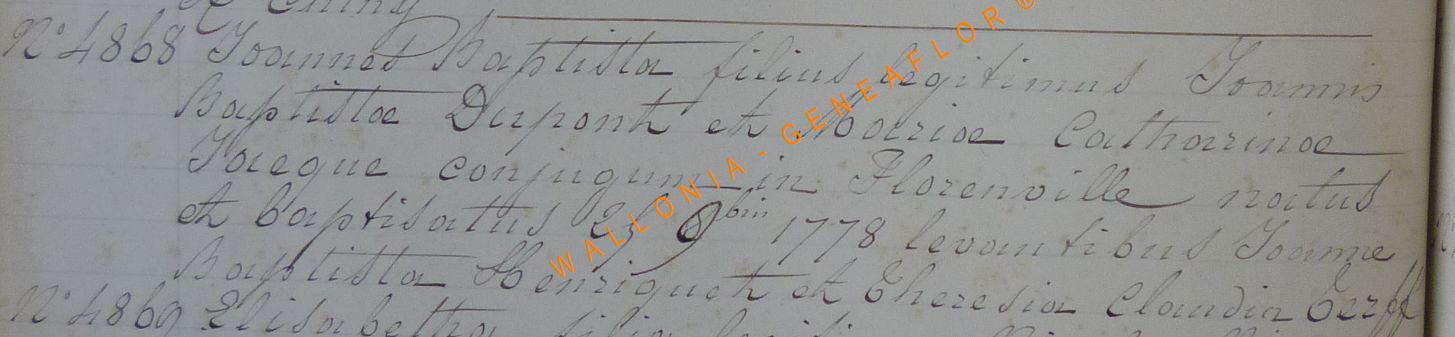 & Chiny
N° 4868 Joannes Baptista filius legitimus Joannis
Baptistæ Dupont et Mariæ Catharinæ
Jacque conjugum in Florenville natus
et baptisatus 25 9bris 1778 levantibus Joanne
Baptista Henriquet et Theresia Claudia Cerff
N° 4869 Elisabetha filia
WALLONIA - GENEAFLOR ©